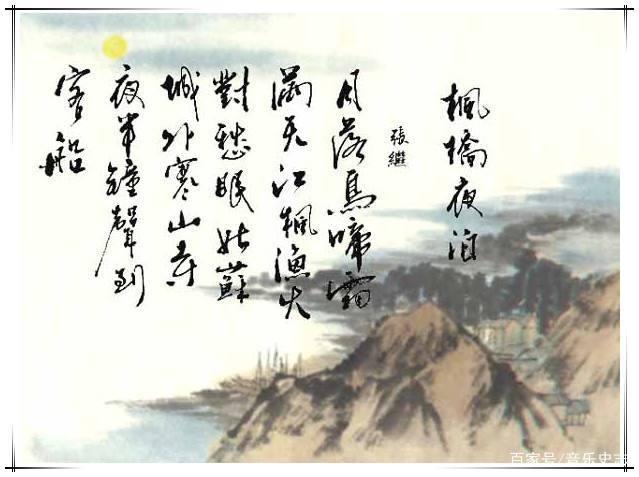 楓橋夜泊
張繼
月落烏啼霜
滿天江楓漁火
對愁眠姑蘇
城外寒山寺
夜半鐘聲到
客船
百家号/音乐史志